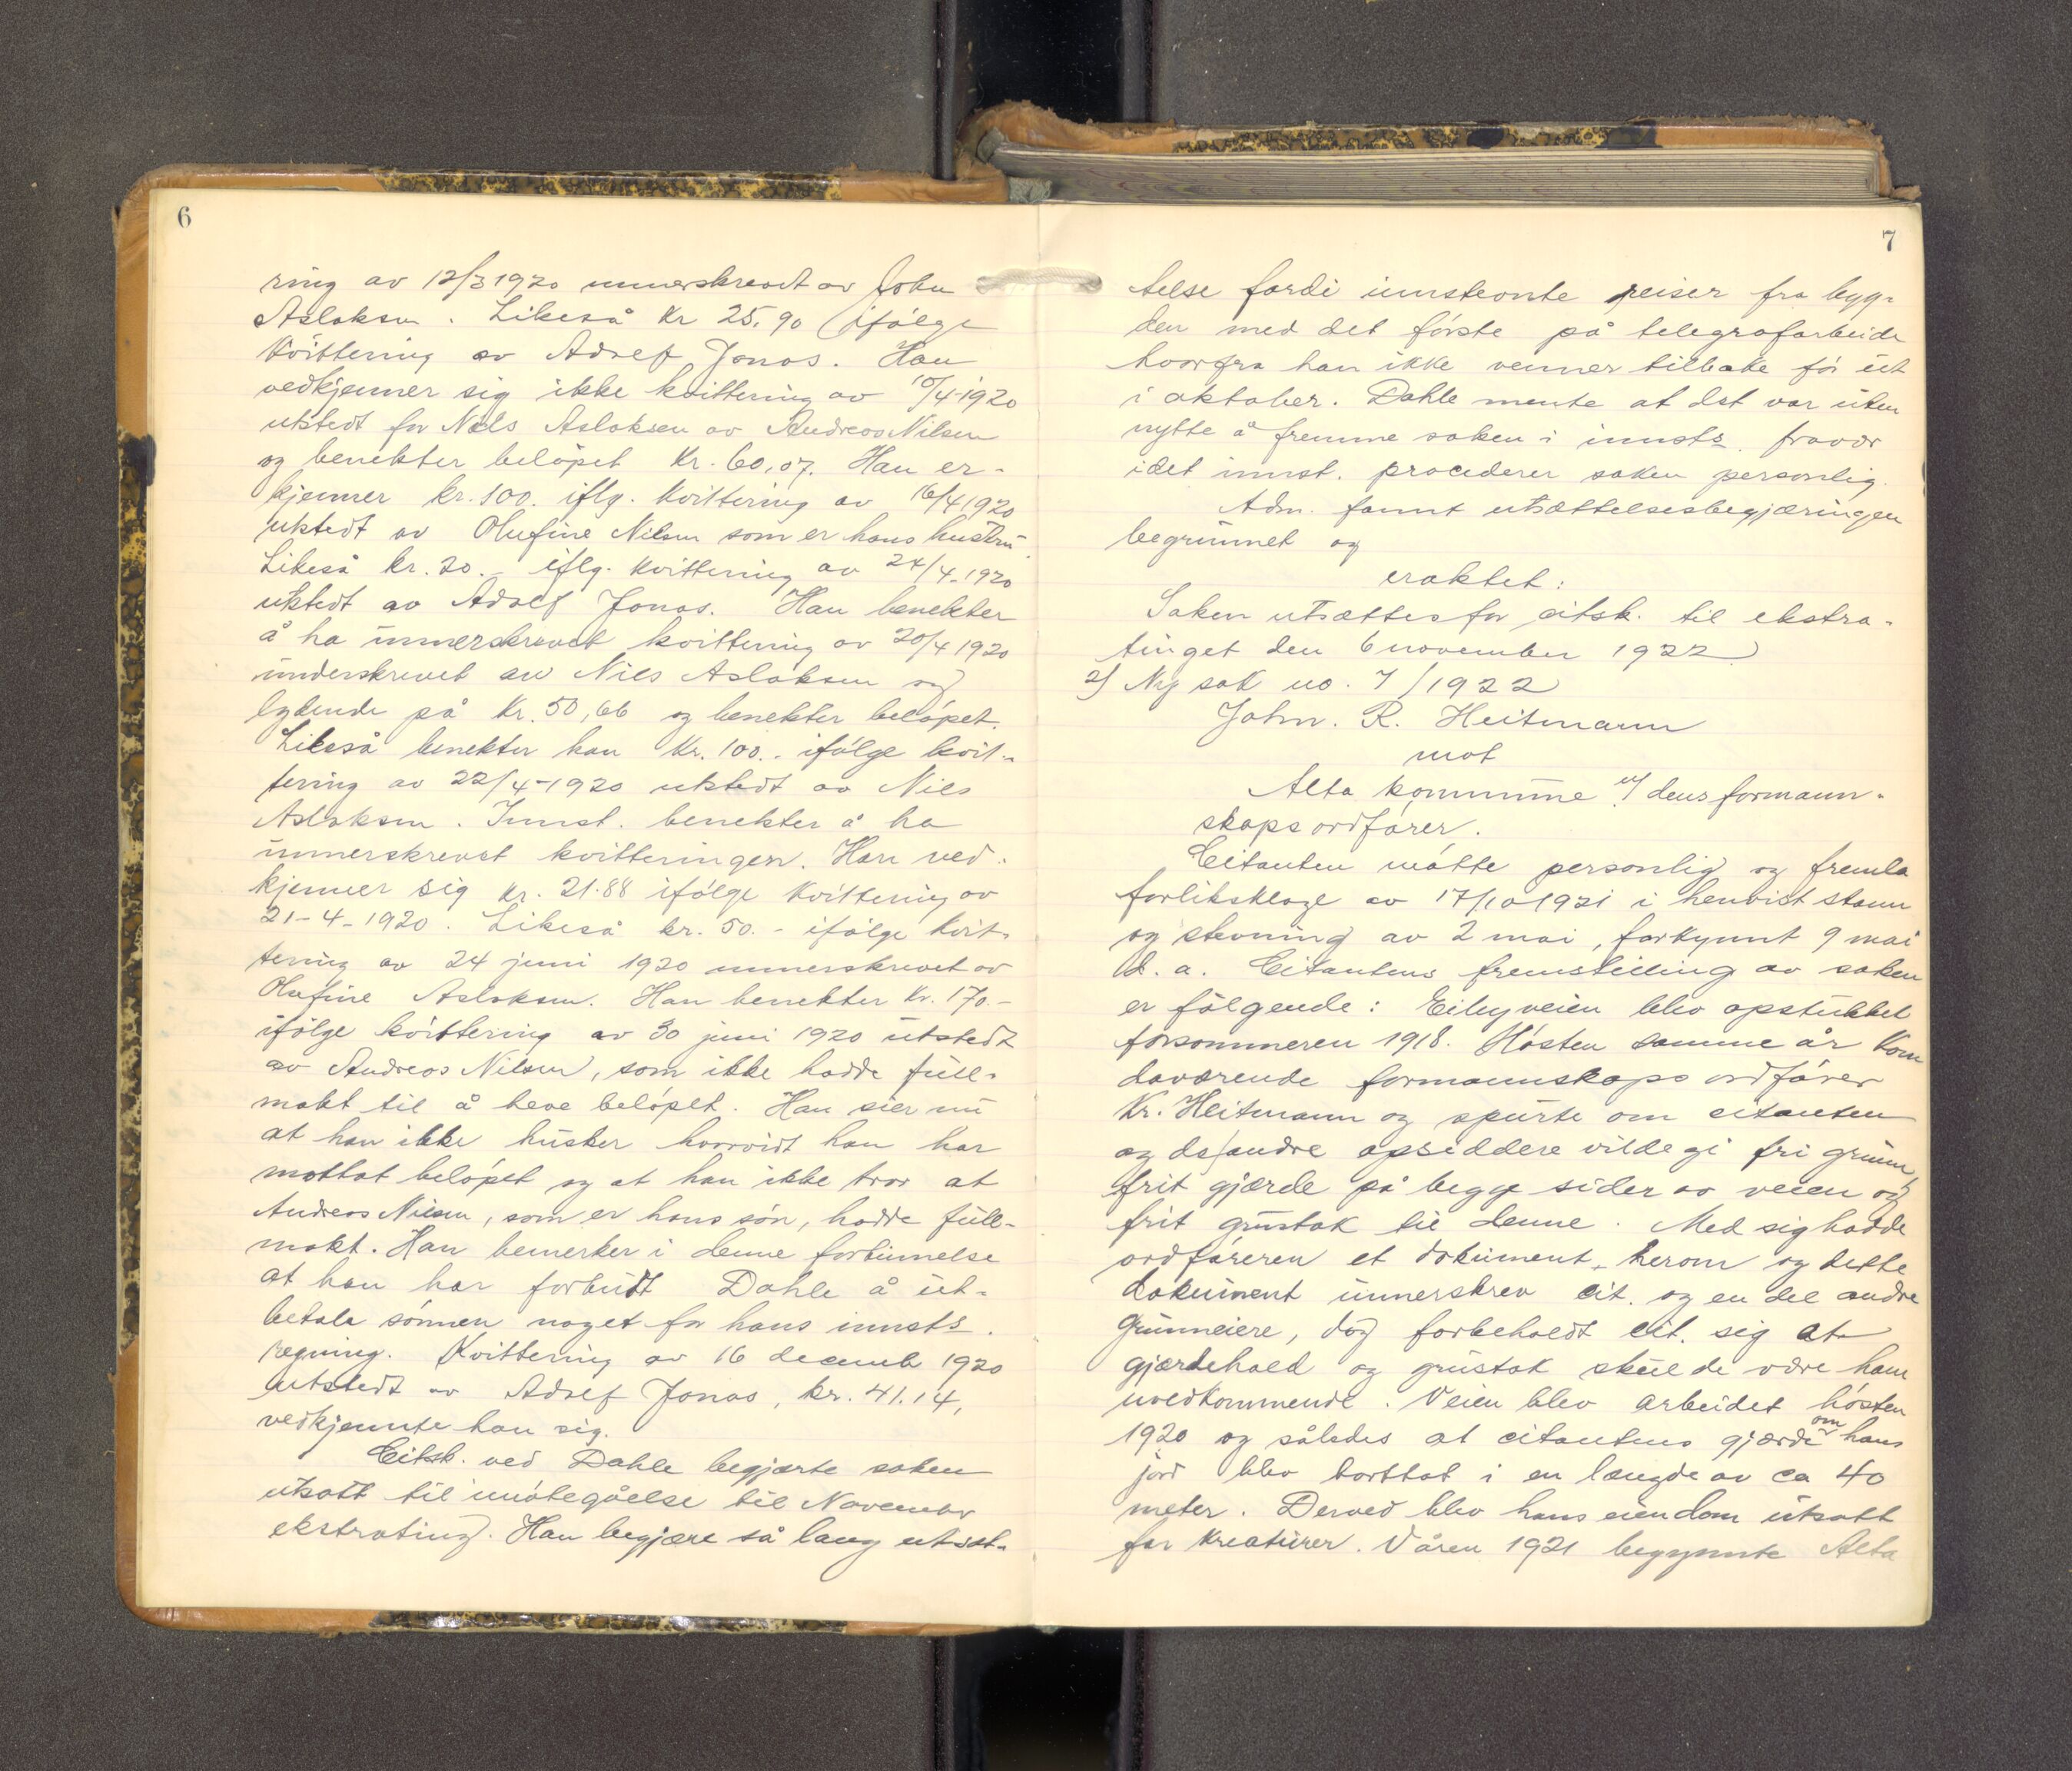 6
ring av 12/3 1920 unnerskrevet av John
Aslaksen. Likeså kr 25,90 ifølge
kvittering av Adolf Jonas. Han
vedkjenner sig ikke kvittering av 10/4-1920
utstedt for Nils Aslaksen av Andreas Nilsen
og benekter beløpet kr. 60,07. Han er-
kjenner kr. 100. iflg. kvittering av 16/4 1920
utstedt av Olufine Nilsen som er hans hustru.
Likeså kr. 20.- iflg. kvittering av 24/4-1920
utstedt av Adolf Jonas. Han benekter
å ha unnerskrevet kvittering av 20/4 1920
underskrevet av Nils Aslaksen og
lydende på kr. 50,66 og benekter beløpet.
Likeså benekter han kr. 100.- ifølge kvit-
tering av 22/4-1920 utstedt av Nils
Aslaksen. Innst. benekter å ha
unnerskrevet kvitteringen. Han ved-
kjenner sig kr. 21.88 ifølge kvittering av
21-4-1920. Likeså kr. 50.- ifølge kvit-
tering av 24 juni 1920 unnerskrevet av
Olufine Aslaksen. Han benekter kr. 170.-
ifølge kvittering av 30 juni 1920 utstedt
av Andreas Nilsen, som ikke hadde full-
makt til å heve beløpet. Han sier nu
at han ikke husker hvorvidt han har
mottat beløpet og at han ikke tror at
Andreas Nilsen, som er hans søn, hadde full-
makt. Han bemerker i denne forbinnelse
at han har forbudt Dahle å ut-
betale sønnen noget for hans innsts.
regning. Kvittering av 16 decemb 1920
utstedt av Adolf Jonas, kr. 41.14,
vedkjennte han sig.
Citsk. ved Dahle begjærte saken
utsatt til imøtegåelse til November
ekstrating. Han begjære så lang utsæt-
7
telse fordi innstevnte reiser fra byg-
den med det første på telegrafarbeide
hvorfra han ikke venner tilbake før ut
i oktober. Dahle mente at det var uten
nytte å fremme saken i innsts. fravær
idet innst. procederer saken personlig.
Adm. fannt utsættelsesbegjæringen
begrunnet og
eraktet:
Saken utsættes for citsk. til ekstra-
tinget den 6 november 1922
2) Ny sak no. 7/1922
John. R. Heitmann
mot
Alta kommune v/ dens formann-
skaps ordfører.
Citanten møtte personlig og fremla
forliksklage av 17/10 1921 i henvist stann
og stevning av 2 mai, forkynnt 9 mai
d. a. Citantens fremstilling av saken
er følgende: Eibyveien blev opstukket
forsommeren 1918. Høsten samme år kom
daværende formannskaps ordfører
Kr. Heitmann og spurte om citanten
og de andre opsiddere vilde gi fri grunn,
frit gjærde på begge sider av veien og
frit grustak til denne. Med sig hadde
ordføreren et dokument herom og dette
dokument unnerskrev cit. og en del andre
grunneiere, dog forbeholdt cit. sig at
gjærdehold og grustak skulde være ham
uvedkommende. Veien blev arbeidet høsten
1920 og således at citantens gjærde om hans
jord blev borttat i en længde av ca 40
meter. Derved blev hans eiendom utsatt
for kreaturer. Våren 1921 begynnte Alta